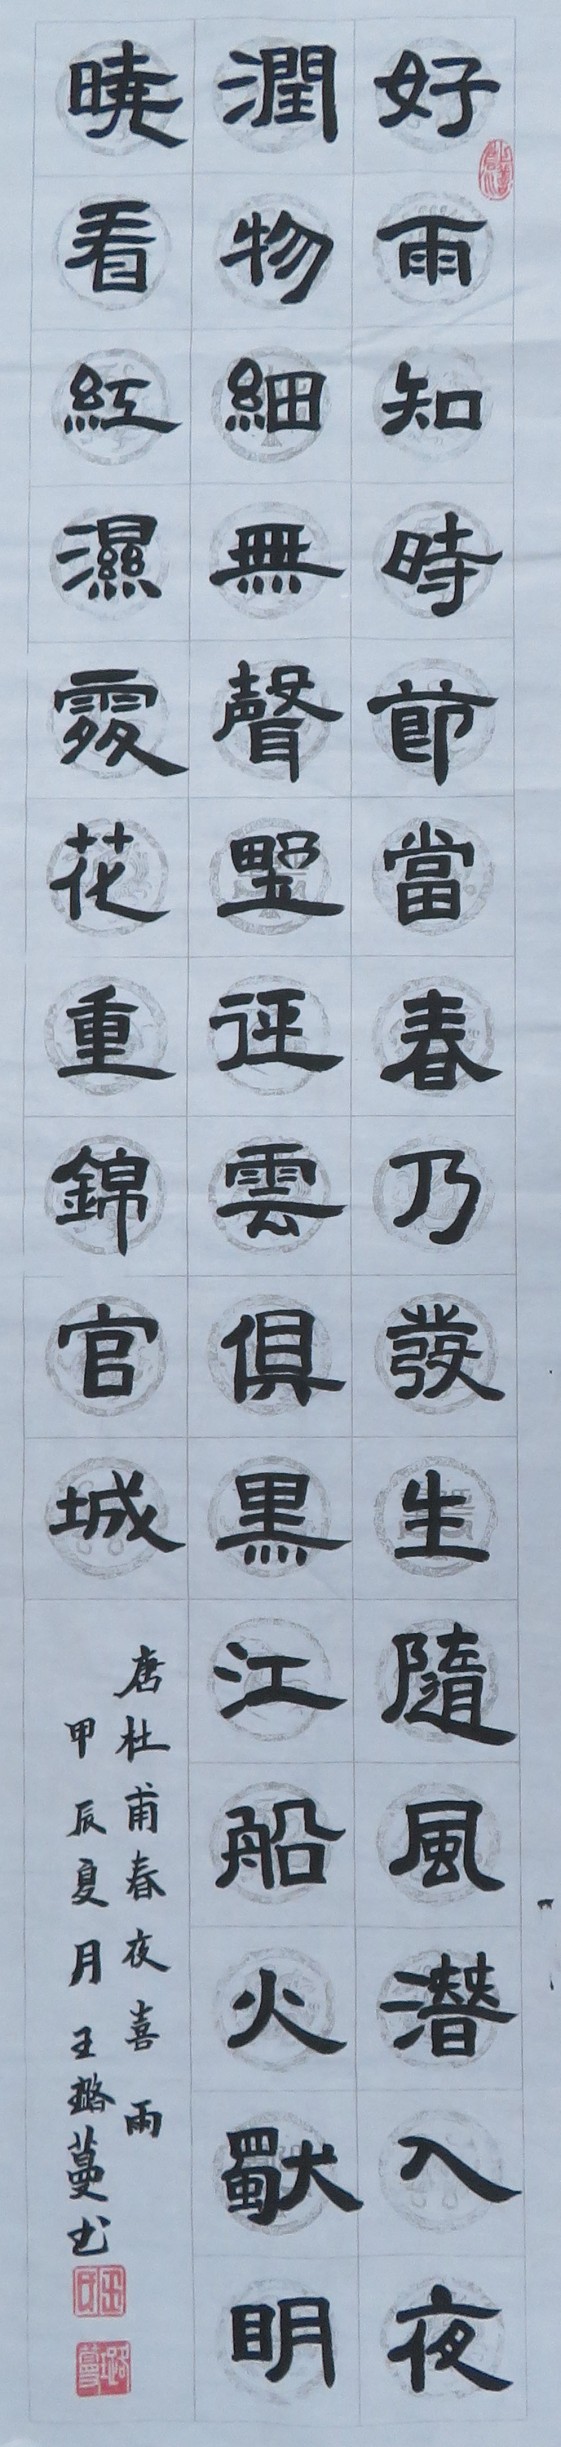 好雨知時節當春乃發生隨風潛入夜
潤物細無聲野徑雲俱黑江船火獨明
曉看紅濕處花重錦官城
唐杜甫春夜喜雨
甲辰夏月王璐蔓书
上善若水
王印
璐蔓